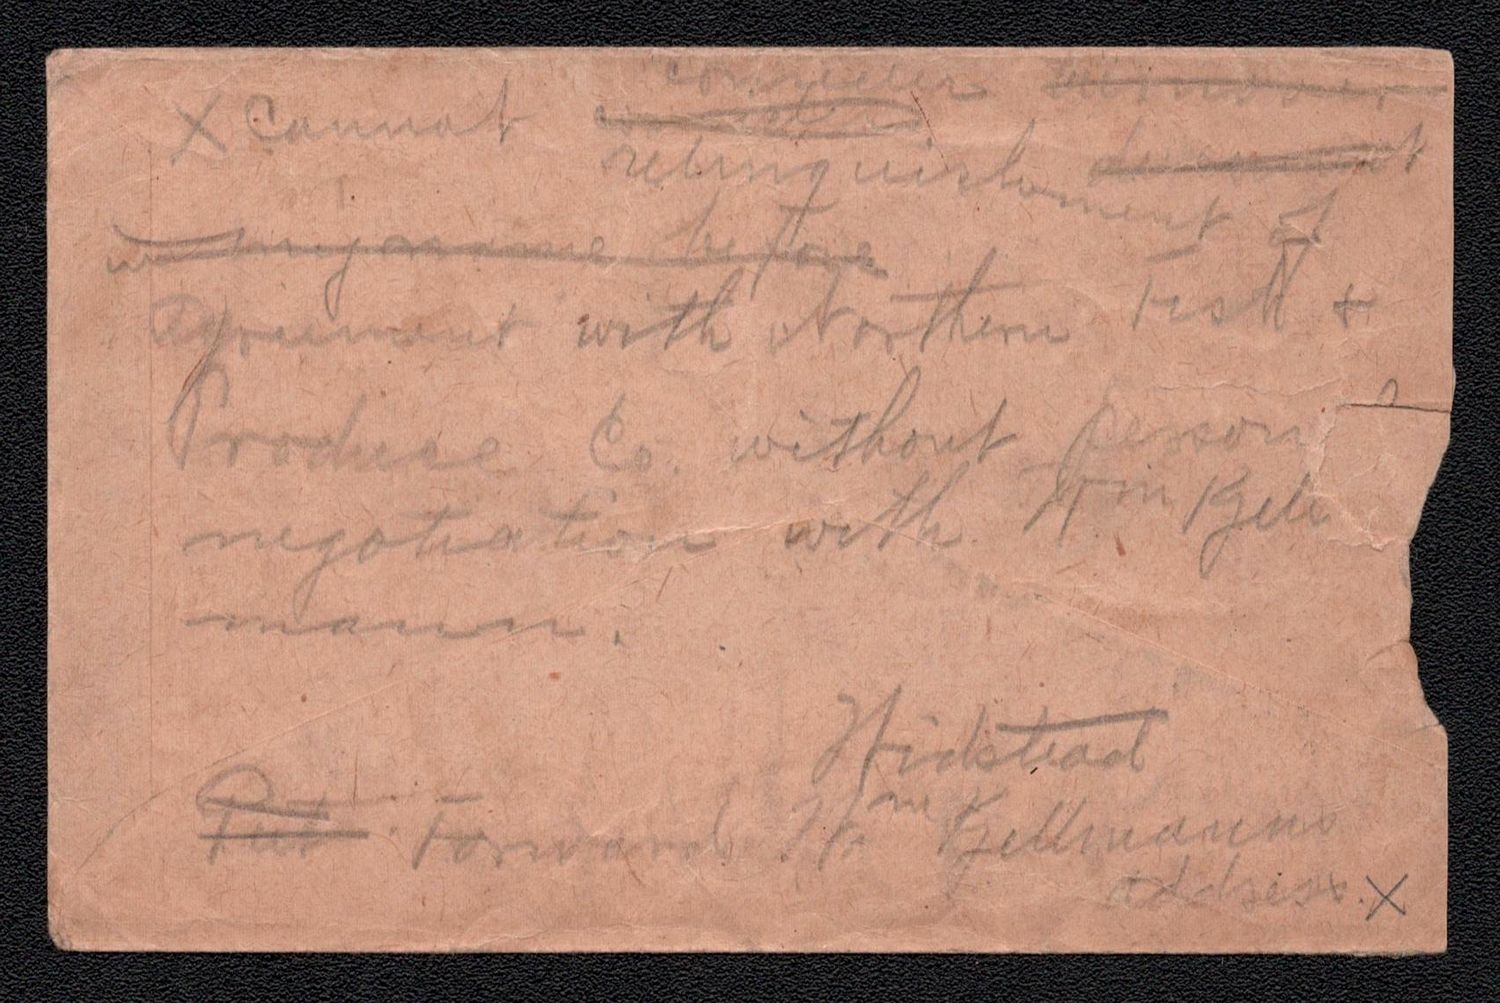 X Cannot consider
relinquishment of
agreement with Northern Fish +
Produce Co. without personal
negotiation with Wm Kjell
mann.
Widstead
Put Forward Wm Kjellmanns
address. X